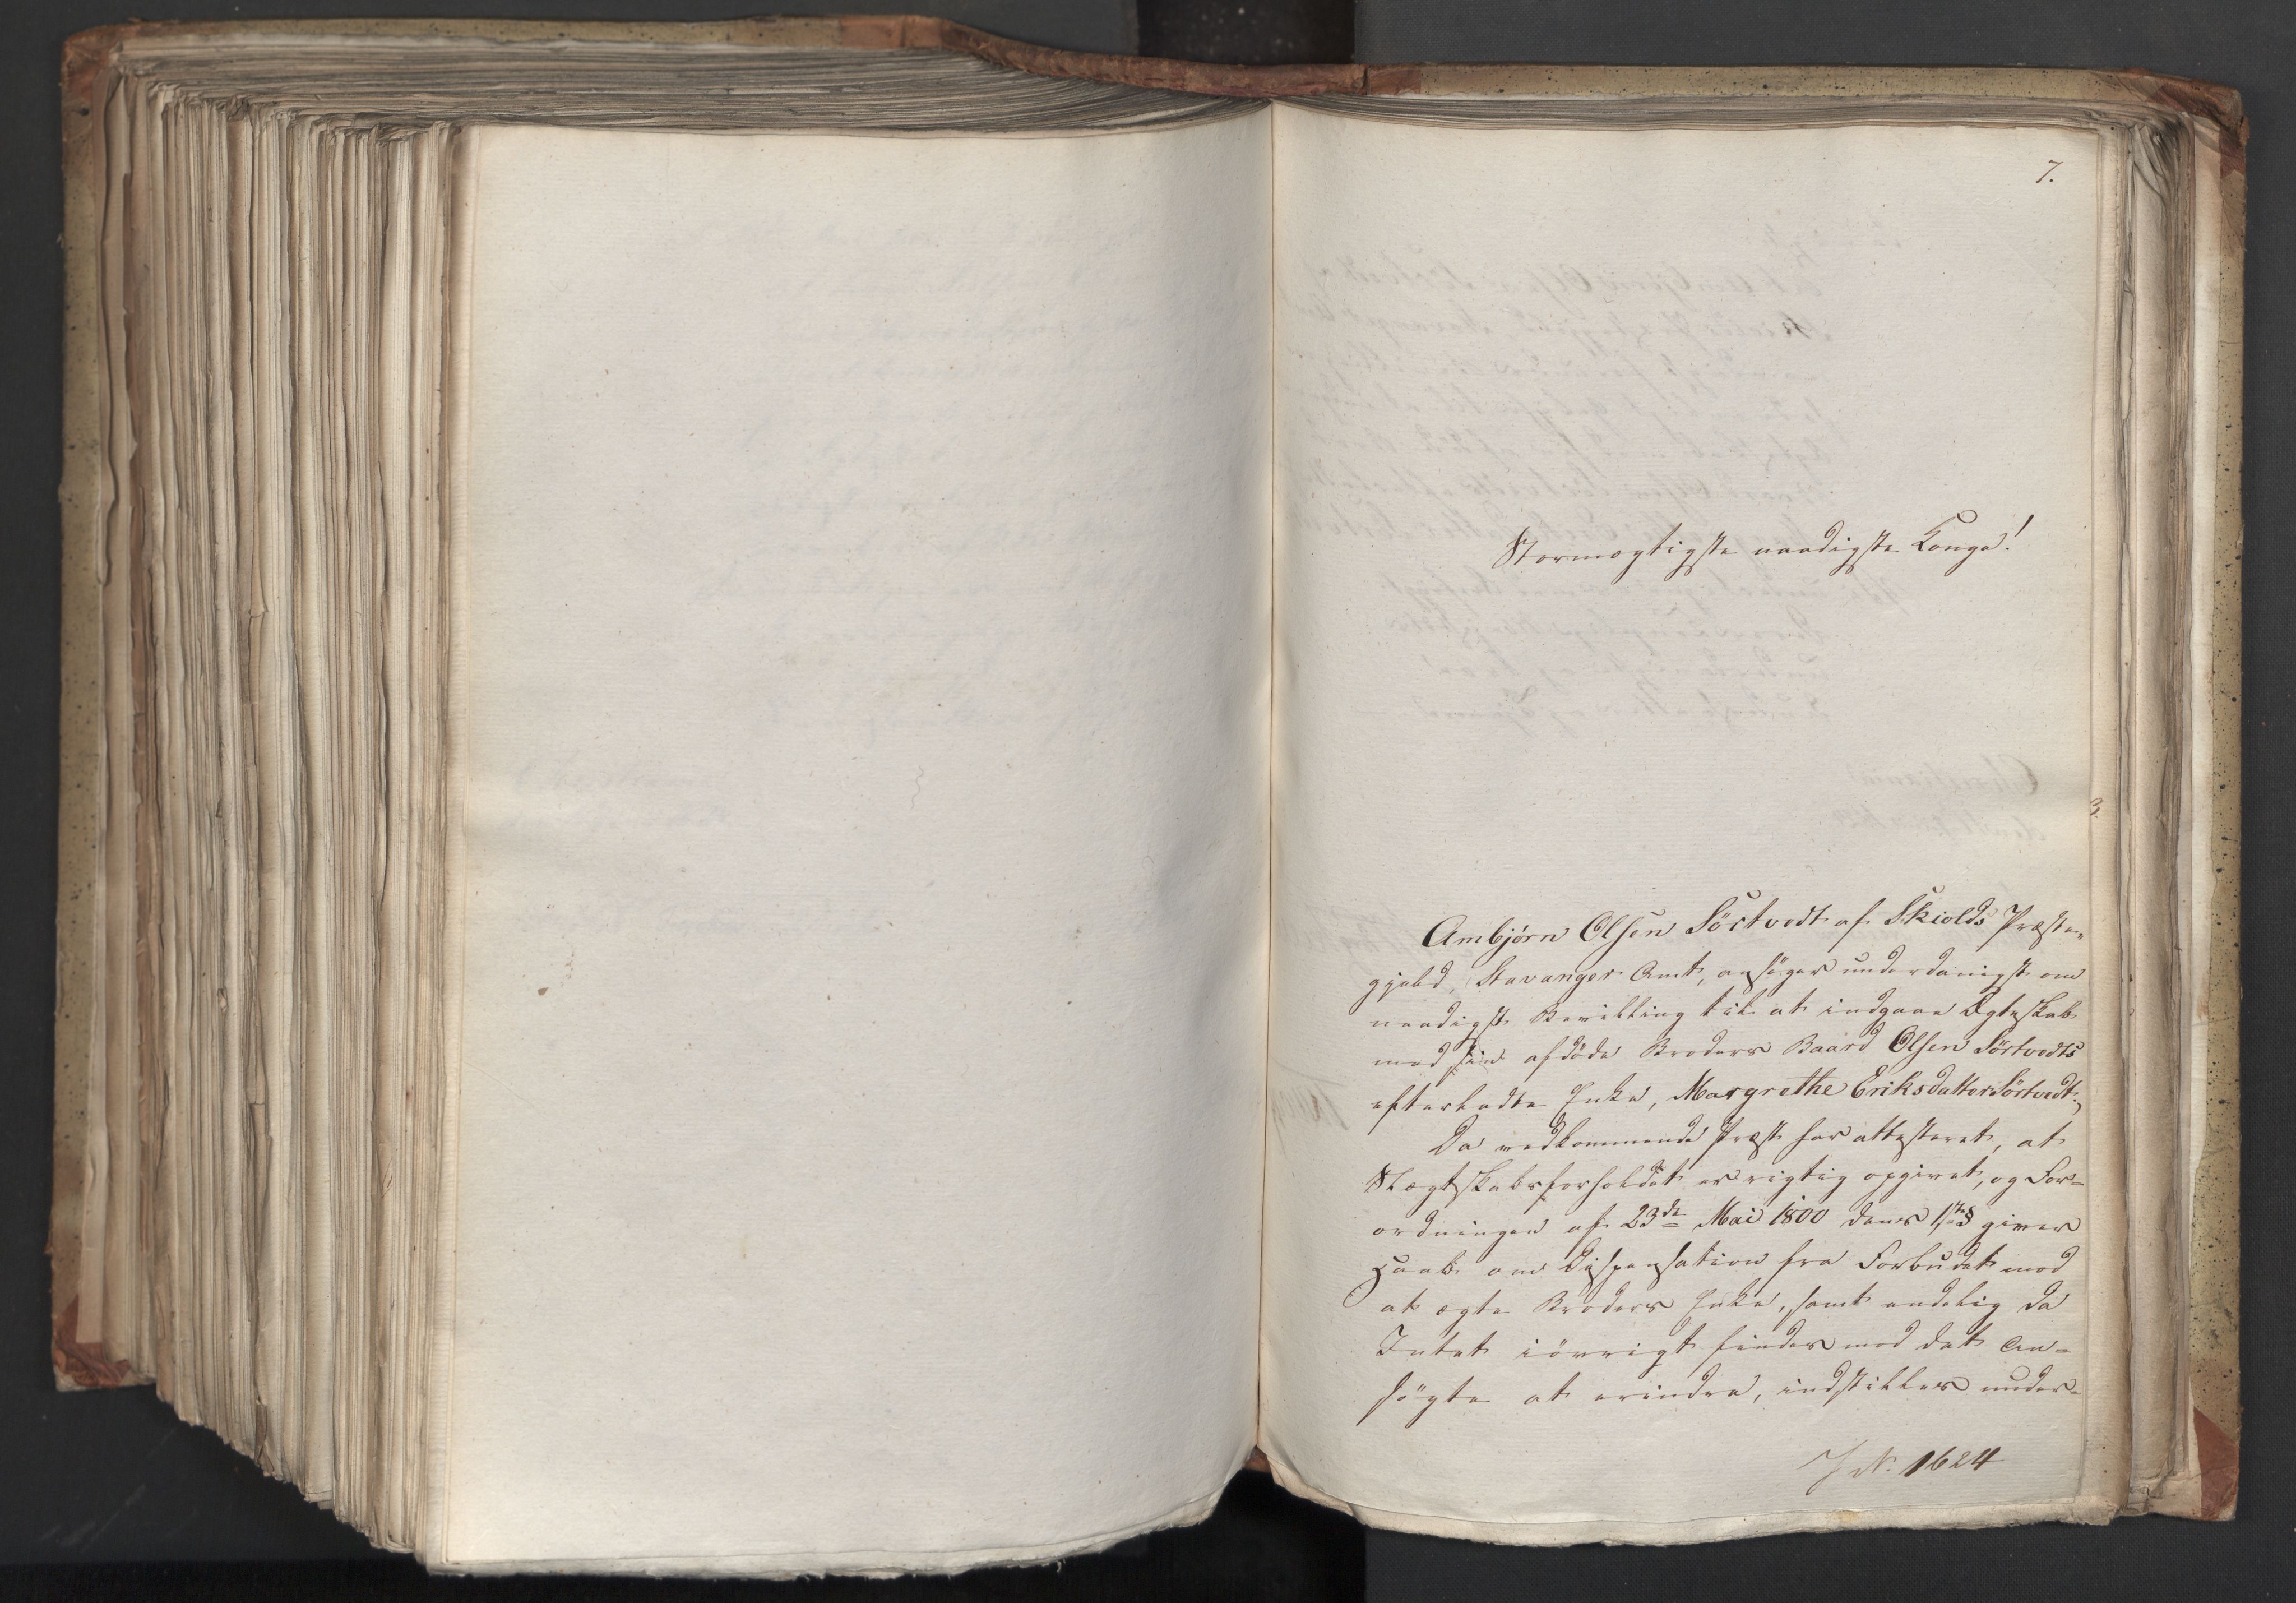 7.
Stormægtigste naadigste Konge!
Ambjörn Olsen Sörtvedt af Skiolds Præste-
gjeld, Stavanger Amt, ansöger underdanigst om
naadigst Bevilling til at indgaae Ægteskab
med sin afdöde Broders Baard Olsen Sörtvedts
efterladte Enke, Margrethe Eriksdatter Sörtvedt.
Da vedkommende Præst har attesteret, at
Slægtskabsforholdet er rigtig opgivet, og For=
ordningen af 23de Mai 1800 dens 1ste § giver
Haab om Dispensation fra Forbudet mod
at ægte Broders Enke, samt endelig da
Intet iövrigt findes mod det An=
sögte at erindre, indstilles under-
J.N. 1624